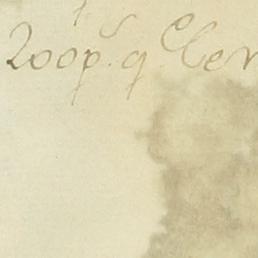 200 p. q. Cler